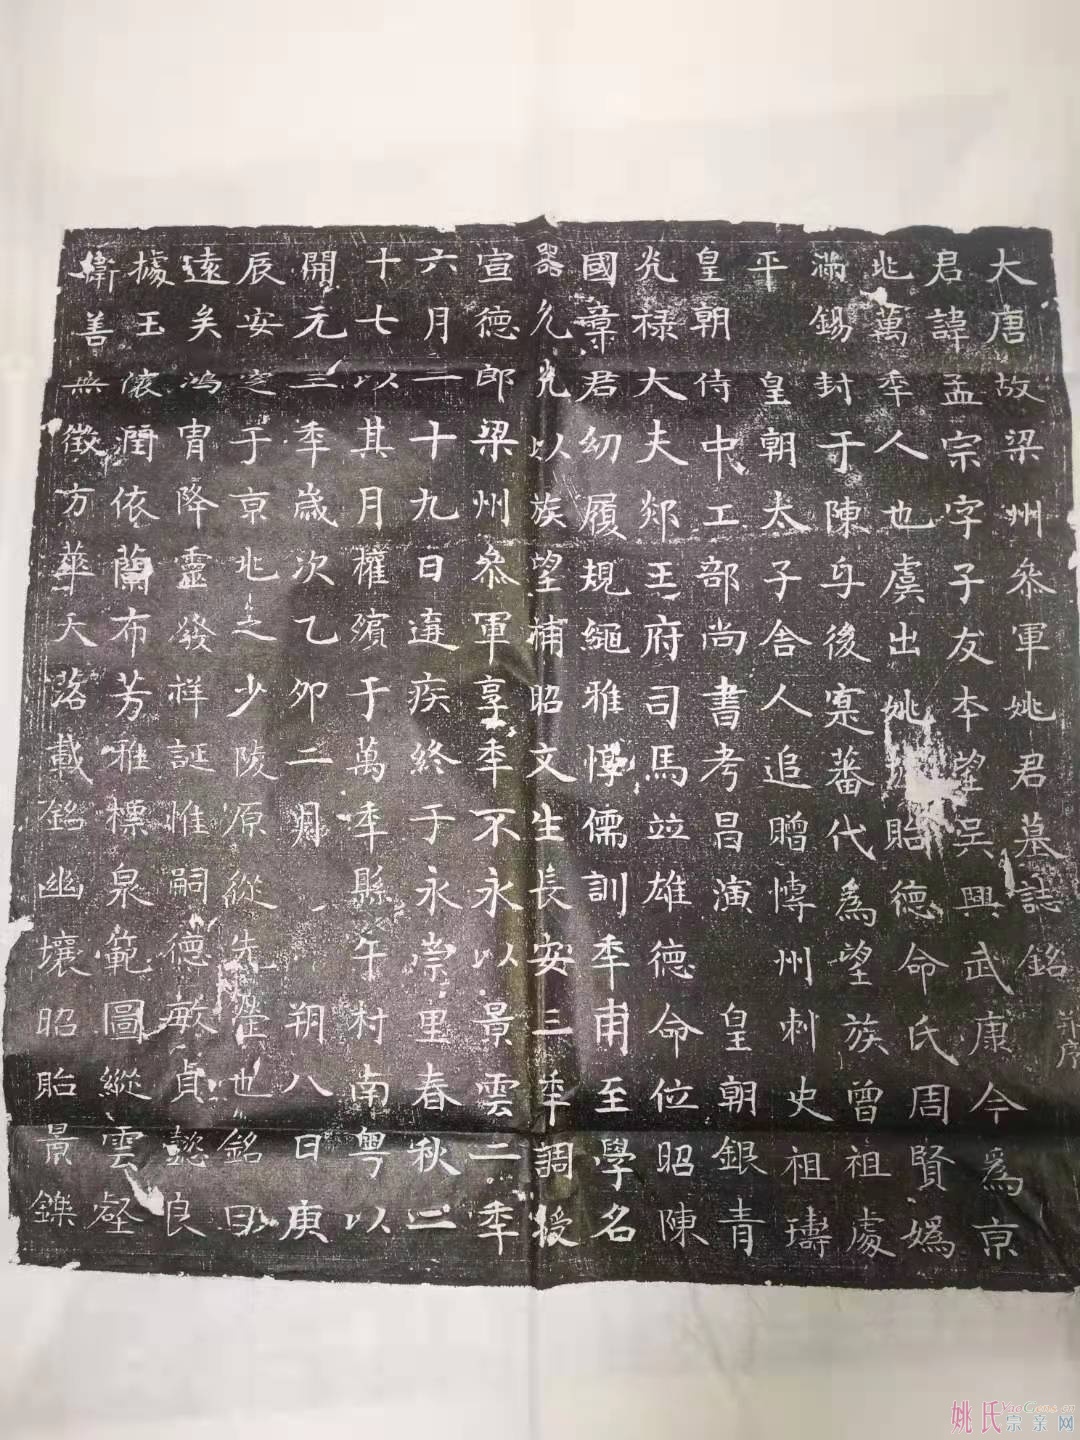 大唐故梁州叅軍姚君墓誌銘并序
君諱孟宗字子友本望吳興武康今為京
兆萬年人也虞出姚貽德命氏周賢媯
滿錫封于陳与後寔蕃代為望族曾祖處
平皇朝太子舍人追贈博州刺史祖璹
皇朝侍中工部尚書考昌演皇朝銀青
光禄大夫郯王府司馬竝雄德命位昭陳
國章君幼履規繩雅博儒訓年甫至學名
器允光以族望補昭文生長安三年調授
宣德郎梁州叅軍享年不永以景雲二年
六月二十九日遘疾終于永崇里春秋二
十七以其月權殯于萬年縣午村南粤以
開元三年歲次乙卯二月朔八日庚
辰安窆于京兆之少陵原從先塋也銘曰
遠矣鴻胄降靈發祥誕惟嗣德敏貞懿良
據玉懷潤依蘭布芳雅標泉範圖縱雲壑
衛善無徵方華夭落載銘幽壤昭貽景鑠
姚氏宗亲网